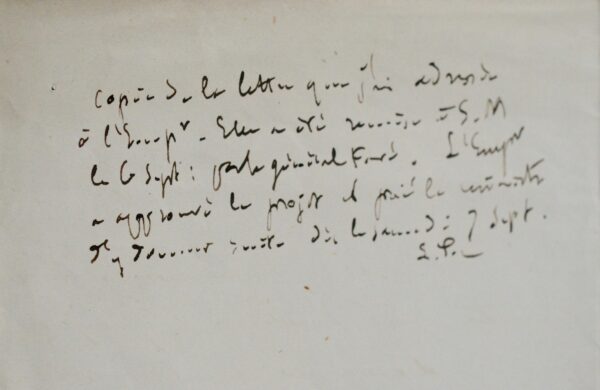 Copie de la lettre que j'ai adressée
à l'Empr. Elle a été remise à S. M
le 6 Sept: par le général Favé. L'Empr
a approuvé le projet et prié le ministre
d'y donner suite dès le samedi 7 Sept.
L. P.